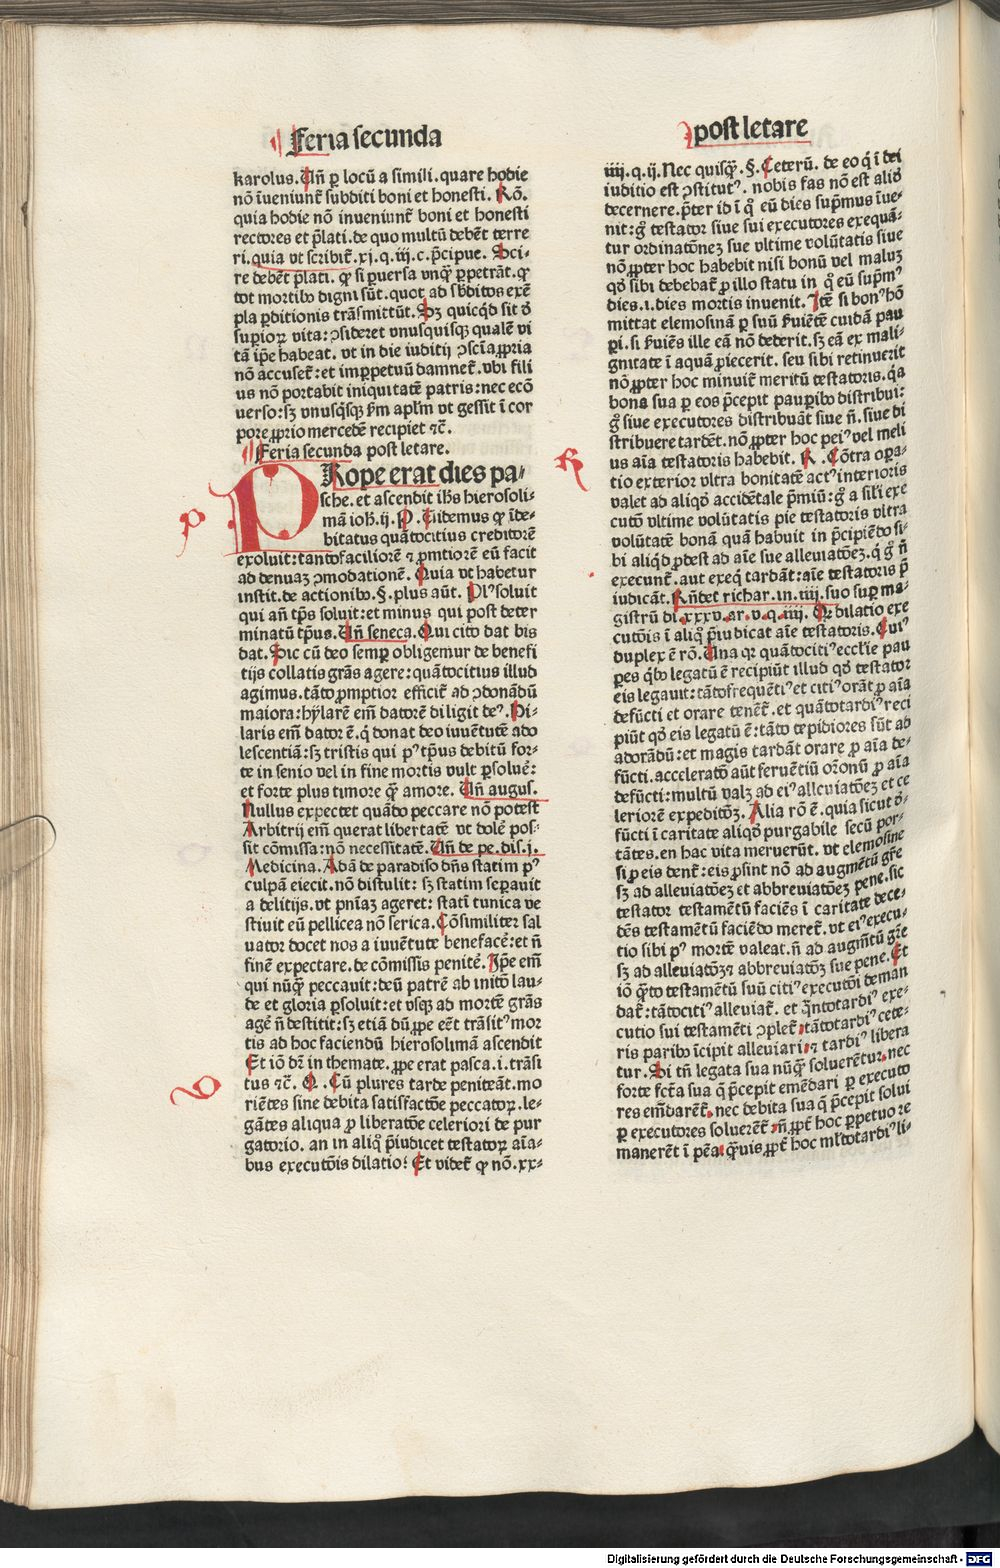 Feria secunda
post letare
karolus. Uñ ꝑ locũ a simili. quare hodie
nõ ĩueniunt᷑ subditi boni et honesti. Rõ.
quia hodie nõ inueniunt᷑ boni et honesti
rectores et p̃lati. de quo multũ debẽt terre
ri. quia vt scribit᷑. xj. q. iij. c. p̃cipue. Sci-
re debẽt p̃lati. ꝙ si ꝑuersa vnq̃ꝫ ꝑpetrãt. ꝙ
tot mortibꝰ digni sũt. quot ad sb̃ditos exẽ
pla ꝑditionis trãsmittũt. Sꝫ quicq̇d sit d̾
superioꝝ vita: ↄsideret vnusquisqꝫ qualẽ vi
tã ip̃e habeat. vt in die iuditij ↄscĩa ꝓpria
nõ accuset᷑: et imꝑpetuũ damnet᷑. vbi fili
us nõ portabit iniquitatẽ patris: nec ecõ
uerso: sꝫ vnusq̇sqꝫ ẜm apl̃m vt gessit ĩ cor
pore ꝓprio mercedẽ recipiet ⁊c̃.
Feria secunda post letare.
PRope erat dies pa-
sche. et ascendit ihs hierosoli-
mã ioh̃. ij. P. Uidemus ꝙ ĩde-
bitatus quãtocitius creditorẽ
exoluit: tanto faciliorẽ ⁊ ꝓmtiorẽ eũ facit
ad denuaꝫ ↄmodationẽ. Quia vt habetur
instit. de actionibꝰ. §. plus aũt. Plꝰ soluit
qui añ tp̃s soluit: et minus qui post deter
minatũ tp̃us. Uñ seneca. Qui cito dat bis
dat. Sic cũ deo semꝑ obligemur de benefi
tijs collatis grãs agere: quãtocitius illud
agimus. tãto ꝓmptior efficit᷑ ad ↄdonãdũ
maiora: hylarẽ em̃ datorẽ diligit deꝰ. Hi-
laris em̃ dator ẽ. q̇ donat deo iuuẽtutẽ ado
lescentiã: sꝫ tristis qui pꝰ tp̃us debitũ for-
te in senio vel in fine mortis vult ꝑsoluẽ:
et forte plus timore q̃ꝫ amore. Uñ augus.
Nullus expectet quãdo peccare nõ potest
Arbitrij em̃ querat libertatẽ vt dolẽ pos-
sit cõmissa: nõ necessitatẽ. Uñ de pe. dis. j.
Medicina. Adã de paradiso dñs statim pꝰ
culpã eiecit. nõ distulit: sꝫ statim seꝑauit
a delitijs. vt pñiaꝫ ageret: statĩ tunica ve
stiuit eũ pellicea nõ serica. Cõsimiliter sal
uator docet nos a iuuẽtute benefacẽ: et ñ
finẽ expectare. de cõmissis penitẽ. Ip̃e em̃
qui nũq̃ꝫ peccauit: deũ patrẽ ab initõ lau-
de et gloria ꝑsoluit: et vsqꝫ ad mortẽ grãs
agẽ ñ destitit: sꝫ etiã dũ ꝓpe eẽt trãsitꝰ mor
tis ad hoc faciendũ hierosolimã ascendit
Et iõ dr̃ in themate. ꝓpe erat pasca. i. trãsi
tus ⁊c̃. Q. Cũ plures tarde peniteãt. mo
riẽtes sine debita satisfactõe peccatoꝝ. le-
gãtes aliqua ꝓ liberatõe celeriori de pur
gatorio. an in aliq̊ p̃iudicet testatoꝝ aĩa-
bus executõis dilatio? Et videt᷑ ꝙ nõ. xx-
iiij. q. ij. Nec quisq̃ꝫ. §. Ceterũ. de eo q̇ ĩ dei
iuditio est ↄstitutꝰ. nobis fas nõ est aliq̊
decernere. p̃ter id ĩ q̊ eũ dies sup̃mus ĩue-
nit: gͦ testator siue sui executores exequã-
tur ordinatõneꝫ sue vltime volũtatis siue
nõ ꝓpter hoc habebit nisi bonũ vel maluꝫ
qd̾ sibi debebat᷑ ꝓ illo statu in q̊ eũ sup̃mꝰ
dies. i. dies mortis inuenit. Itẽ si bonꝰ hõ
mittat elemosinã ꝑ suũ ẜuiẽtẽ cuidã pau
ꝑi. si ẜuiẽs ille eã nõ dederit. sꝫ eã ex mali-
gnitate ĩ aquã ꝓiecerit. seu sibi retinuerit
nõ ꝓpter hoc minuit᷑ meritũ testatoris. q̇a
bona sua ꝑ eos p̃cepit pauꝑibꝰ distribui:
gͦ siue executores distribuãt siue ñ. siue di
stribuere tardẽt. nõ ꝓpter hoc peiꝰ vel meli
us aĩa testatoris habebit. R. Cõtra oꝑa-
tio exterior vltra bonitatẽ actꝰ interioris
valet ad aliqd̾ accidẽtale p̃miũ: gͦ a sili exe
cutõ vltime volũtatis pie testatoris vltra
volũtatẽ bonã quã habuit in p̃cipiẽdo si-
bi aliq̇d ꝓdest ad aĩe sue alleuiatõeꝫ. q̇ gͦ ñ
execunt᷑. aut exeq̇ tardãt: aĩe testatoris p̃
iudicãt. Rñdet richar. in. iiij. suo suꝑ ma-
gistrũ di. xxxv. ar. v. q. iiij. Qr dilatio exe
cutõis ĩ aliq̊ p̃iudicat aĩe testatoris. Cuiꝰ
duplex ẽ rõ. Una qr quãtocitiꝰ ecclie pau
ꝑes q̇bꝰ legatũ ẽ recipiũt illud qd̾ testator
eis legauit: tãto frequẽtiꝰ et citiꝰ orãt ꝓ aĩa
defũcti et orare tenẽt᷑. et quãto tardiꝰ reci
piũt qd̾ eis legatũ ẽ: tãto tepidiores sũt ad
adorãdũ: et magis tardãt orare ꝓ aĩa de-
fũcti. acceleratõ aũt feruẽtiũ or̃onũ ꝓ aĩa
defũcti: multũ valꝫ ad eiꝰ alleuiatõeꝫ et ce
leriorẽ expeditõꝫ. Alia rõ ẽ. quia sicut d̾-
fũcti ĩ caritate aliqd̾ purgabile secũ por-
tãtes. en hac vita meruerũt. vt elemosine
si ꝓ eis dent᷑: eis ꝓsint nõ ad augmẽtũ gr̃e
sꝫ ad alleuiatõeꝫ et abbreuiatõeꝫ pene. sic
testator testamẽtũ faciẽs ĩ caritate dece-
dẽs testamẽtũ faciẽdo meret᷑. vt eiꝰ execu-
tio sibi pꝰ mortẽ valeat. ñ ad augm̃tũ gr̃e
sꝫ ad alleuiatõꝫ ⁊ abbreuiatõꝫ sue pene. Et
iõ q̃to testamẽtũ suũ citiꝰ executõi deman
dat᷑: tãtocitiꝰ alleuiat᷑. et q̃nto tardiꝰ exe-
cutio sui testamẽti ↄplet᷑, tãto tardiꝰ cete-
ris paribꝰ ĩcipit alleuiari, ⁊ tardiꝰ libera
tur. Si tñ legata sua nũq̃ꝫ soluerẽtur, nec
forte fct̃a sua q̃ p̃cepit emẽdari ꝑ executo
res em̃darẽt᷑, nec debita sua q̃ p̃cepit solui
ꝑ executores soluerẽt᷑, ñ ꝓpt̾ hoc ꝑpetuo re
manerẽt ĩ pẽa, q̃uis ꝓpt̾ hoc ml̃to tardiꝰ li-
Digitalisierung gefördert durch die Deutsche Forschungsgemeinschaft - DFG